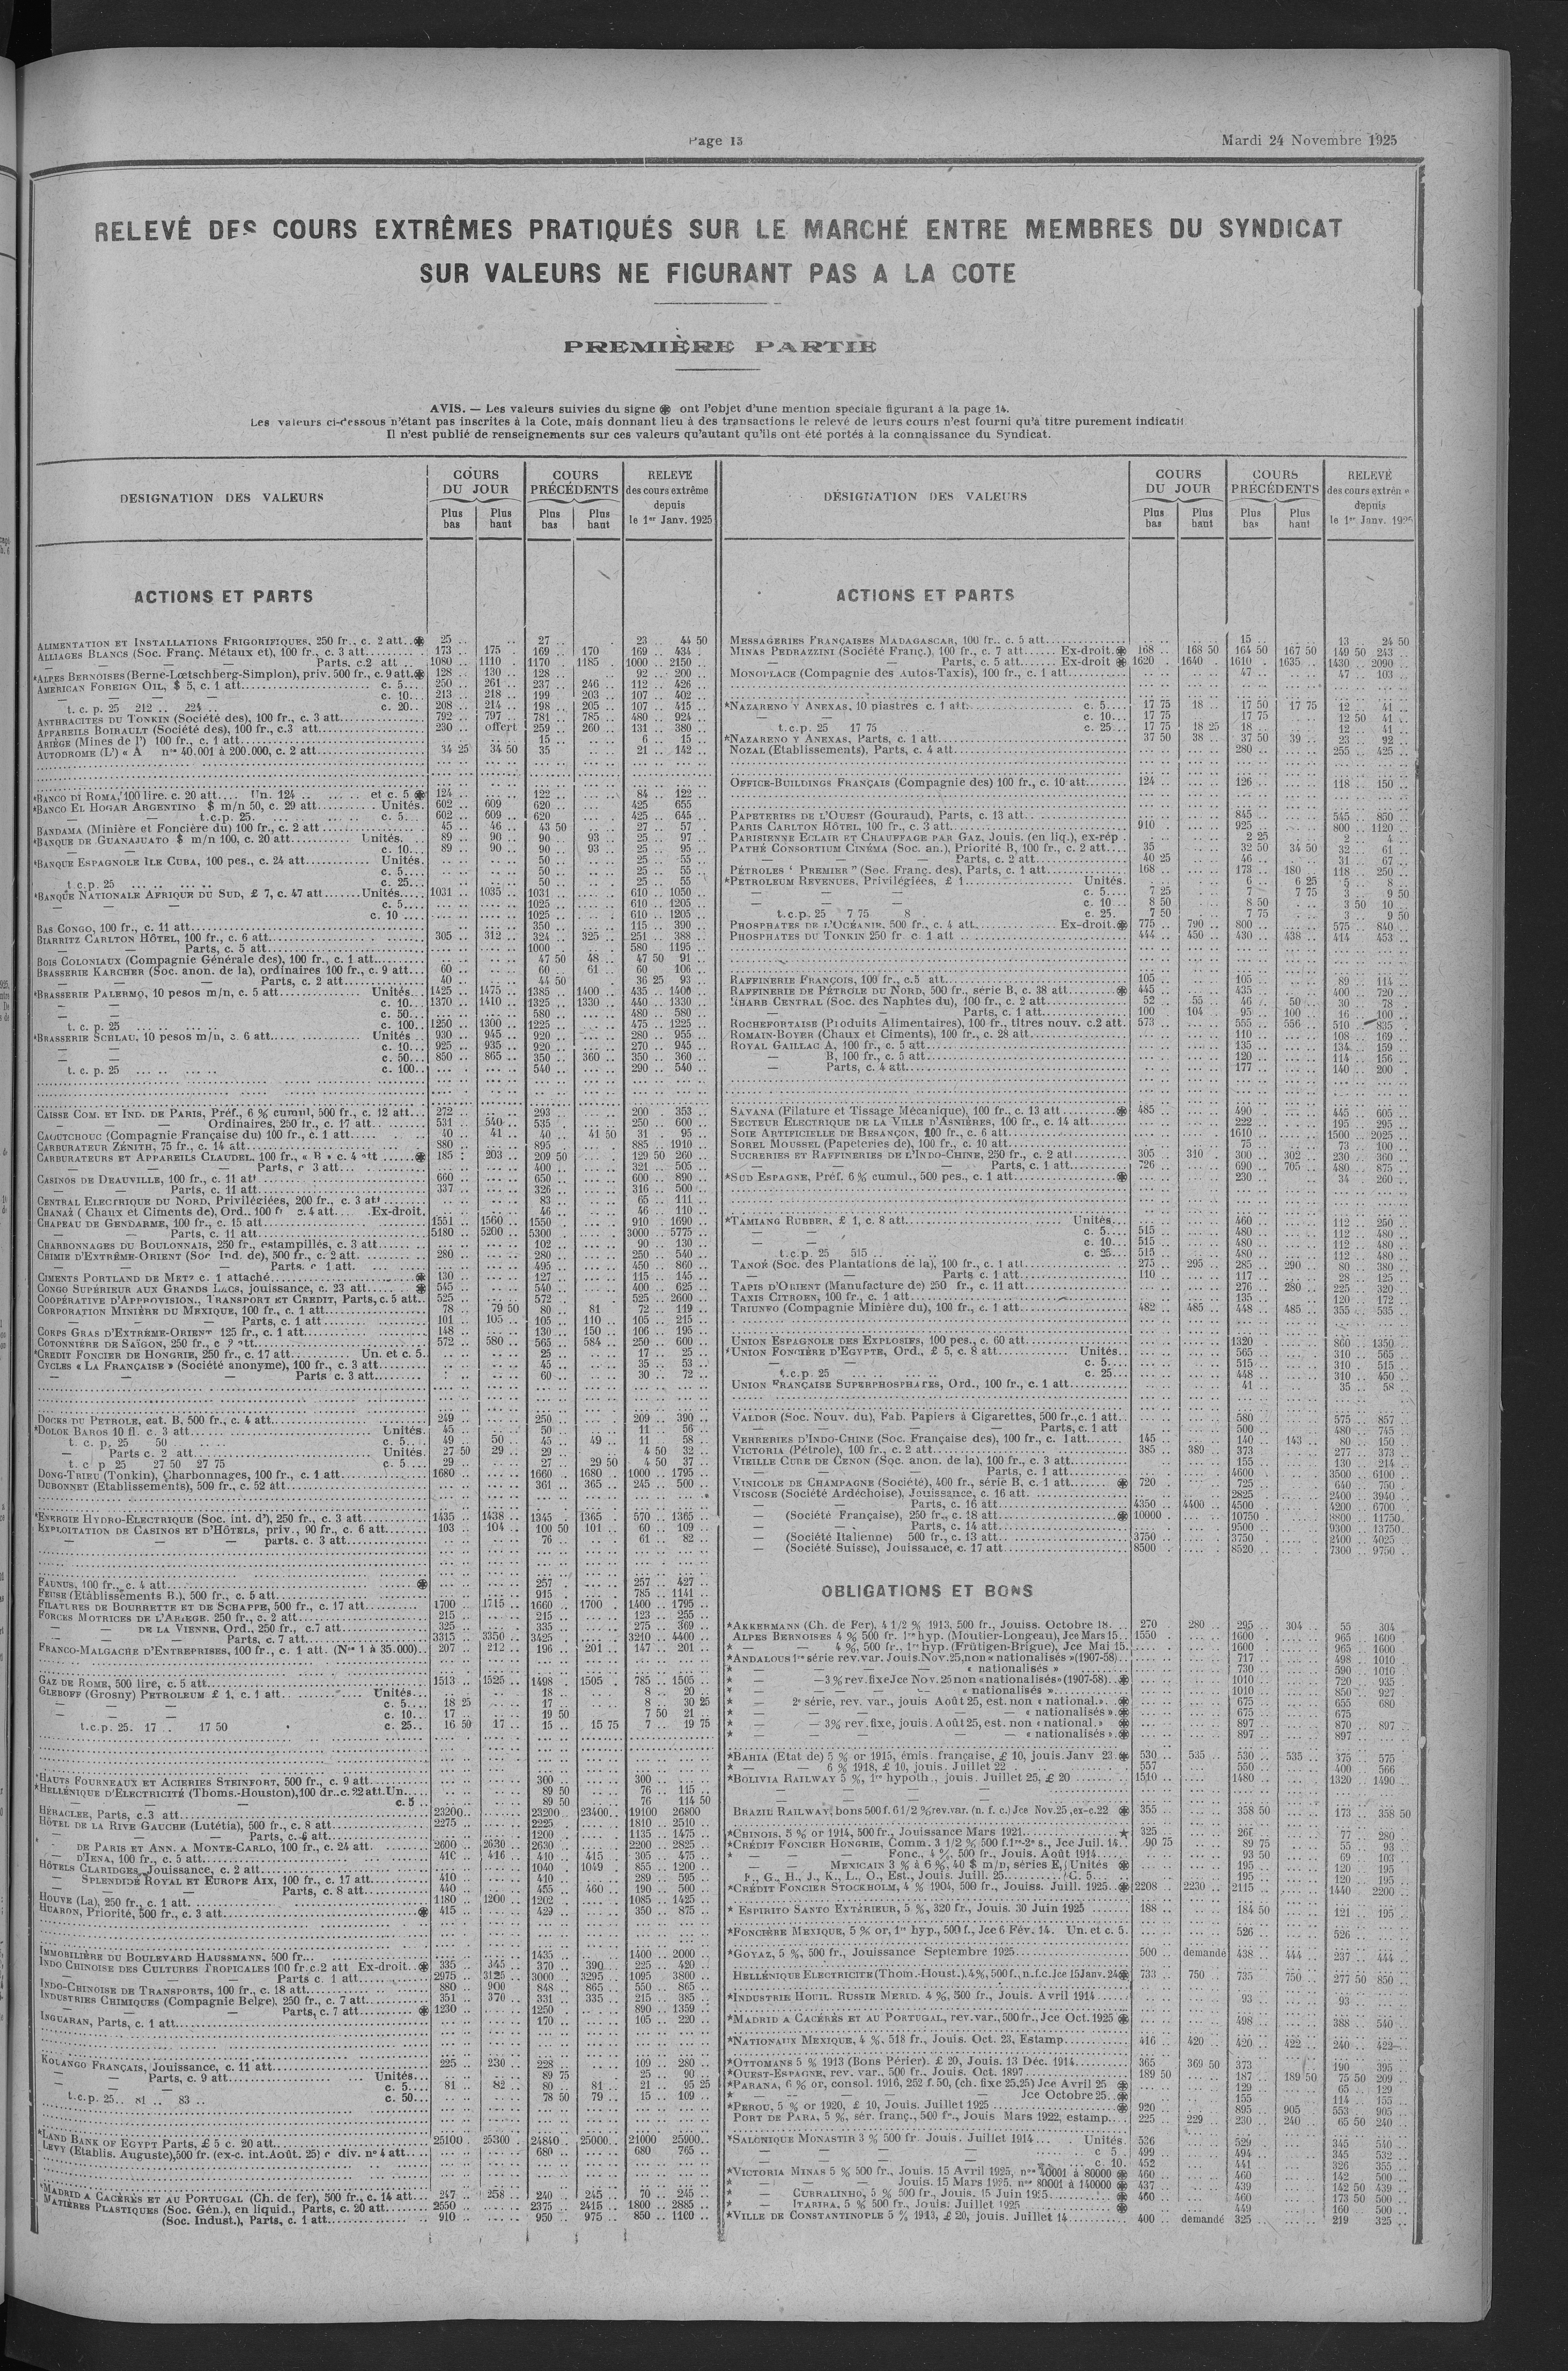 Page 13
Mardi 24 Novembre 1925
RELEVÉ DES COURS EXTRÊMES PRATIQUÉS SUR LE MARCHÉ ENTRE MEMBRES DU SYNDICAT
SUR VALEURS NE FIGURANT PAS A LA COTE
PREMIÈRE PARTIE
AVIS. — Les valeurs suivies du signe ❋ ont l'objet d'une mention speciale figurant à la page 14.
Les valeurs ci-dessous n'étant pas inscrites à la Cote, mais donnant lieu à des transactions le relevé de leurs cours n'est fourni qu'à titre purement indicatif
Il n'est publié de renseignements sur ces valeurs qu'autant qu'ils ont été portés à la connaissance du Syndicat.
DESIGNATION DES VALEURS
COURS DU JOUR
Plus bas
Plus haut
COURS PRÉCÉDENTS
Plus bas
Plus haut
RELEVE des cours extrême depuis le 1er Janv. 1925
ACTIONS ET PARTS
ALIMENTATION ET INSTALLATIONS FRIGORIFIQUES, 250 fr., c. 2 att..❋ 25 .. 27 .. 23 .. 44 50
ALLIAGES BLANCS (Soc. Franç. Métaux et), 100 fr., c. 3 att 173 175 169 .. 170 169 .. 434 ..
— — — Parts, c.2 att .. 1080 .. 1110 .. 1170 .. 1185 .. 1000 .. 2150 ..
*ALPES BERNOISES (Berne-Lœtschberg-Simplon), priv. 500 fr., c. 9 att.❋ 128 .. 130 .. 128 .. 92 .. 200 ..
AMERICAN FOREIGN OIL, $ 5, c. 1 att c. 5 250 .. 261 .. 237 .. 246 .. 112 .. 426 ..
— — — c. 10 213 .. 218 .. 199 .. 203 .. 107 .. 402 ..
t. c. p. 25 212 .. 224 .. c. 20.. 208 .. 214 .. 198 .. 205 .. 107 .. 415 ..
ANTHRACITES DU TONKIN (Société des), 100 fr., c. 3 att 792 .. 797 .. 781 .. 785 .. 480 .. 924 ..
APPAREILS BOIRAULT (Société des), 100 fr., c.3 att 230 .. offert 259 .. 260 .. 131 .. 380 ..
ARIÈGE (Mines de l') 100 fr., c. 1 att 15 .. 6 .. 15 ..
AUTODROME (L') « A nos 40.001 à 200.000, c. 2 att 34 25 34 50 35 .. 21 .. 142 ..
*BANCO DI ROMA, 100 lire. c. 20 att.... Un. 124 .. et c. 5 ❋ 124 .. 122 .. 84 .. 122 ..
*BANCO EL HOGAR ARGENTINO $ m/n 50, c. 29 att Unités. 602 .. 609 620 .. 425 655
— t.c.p. 25. c. 5 602 .. 609 .. 620 .. 425 .. 645 ..
BANDAMA (Minière et Foncière du) 100 fr., c. 2 att 45 .. 46 .. 43 50 27 .. 57
*BANQUE DE GUANAJUATO $ m/n 100, c. 20 att Unités. 89 .. 90 .. 90 .. 93 .. 25 .. 97 ..
c. 10 89 .. 90 .. 90 .. 93 .. 25 .. 95 ..
*BANQUE ESPAGNOLE ILE CUBA, 100 pes., c. 24 att Unités. 50 .. 25 .. 55 ..
c. 5 50 .. 25 .. 55 ..
t.c.p. 25 c. 25 50 .. 25 .. 55 50
*BANQUE NATIONALE AFRIQUE DU SUD, £ 7, c. 47 att Unités 1031 .. 1035 .. 1031 .. 610 .. 1050 ..
c. 5 1025 .. 610 .. 1205 ..
c. 10 1025 .. 610 .. 1205 ..
BAS CONGO, 100 fr., c. 11 att 350 .. 115 .. 390 ..
BIARRITZ CARLTON HÔTEL, 100 fr., c. 6 att 305 .. 312 .. 324 .. 325 .. 251 .. 388 ..
— Parts, c. 5 att 1000 .. 580 .. 1195 ..
BOIS COLONIAUX (Compagnie Générale des), 100 fr., c. 1 att 47 50 48 .. 47 50 91 ..
BRASSERIE KARCHER (Soc. anon. de la), ordinaires 100 fr., c. 9 att 60 .. 60 .. 61 .. 60 .. 106 ..
— Parts, c. 2 att 40 .. 44 50 36 25 93 ..
*BRASSERIE PALERMO, 10 pesos m/n, c. 5 att Unités 1425 .. 1475 .. 1385 .. 1400 .. 435 .. 1400 ..
— — c. 10 1370 .. 1410 .. 1325 .. 1330 .. 440 .. 1330 ..
— — c. 50 580 .. 480 .. 580 ..
t. c. p. 25 c. 100 1250 .. 1300 .. 1225 .. 475 .. 1225 ..
*BRASSERIE SCHLAU, 10 pesos m/n, c. 6 att Unités 930 .. 945 .. 920 .. 280 .. 955 ..
— — c. 10 925 .. 935 .. 920 .. 270 .. 945 ..
— — c. 50 850 .. 865 .. 350 .. 360 .. 350 .. 360 ..
t. c. p. 25 c. 100 540 .. 290 .. 540 ..
CAISSE COM. ET IND. DE PARIS, Préf., 6 % cumul, 500 fr., c. 12 att 272 .. 293 .. 200 .. 353 ..
— — Ordinaires, 250 fr., c. 17 att 531 .. 540 .. 535 .. 250 .. 600 ..
CAOUTCHOUC (Compagnie Française du) 100 fr., c. 1 att 40 .. 41 .. 40 .. 41 50 31 .. 95 ..
CARBURATEUR ZÉNITH, 75 fr., c. 14 att 880 .. 895 .. 885 .. 1910 ..
CARBURATEURS ET APPAREILS CLAUDEL, 100 fr., « B » c. 4 att ❋ 185 .. 203 .. 209 50 129 50 260 ..
— — — Parts, c 3 att 400 .. 321 .. 505 ..
CASINOS DE DEAUVILLE, 100 fr., c. 11 att 660 .. 650 .. 600 .. 890 ..
— — Parts, c. 11 att 337 .. 326 .. 316 .. 500 ..
CENTRAL ELECTRIQUE DU NORD, Privilégiées, 200 fr., c. 3 att 83 .. 65 .. 111 ..
CHANAZ (Chaux et Ciments de), Ord.. 100 fr c. 4 att .Ex-droit. 46 .. 46 .. 110 ..
CHAPEAU DE GENDARME, 100 fr., c. 15 att 1551 .. 1560 .. 1550 .. 910 .. 1690 ..
— Parts, c. 11 att 5180 .. 5200 .. 5300 .. 3000 .. 5775 ..
CHARBONNAGES DU BOULONNAIS, 250 fr., estampillés, c. 3 att 102 .. 90 .. 130 ..
CHIMIE D'EXTRÊME-ORIENT (Soc Ind. de), 500 fr., c. 2 att. 280 .. 280 .. 250 .. 540 ..
— Parts. c 1 att. 495 .. 450 .. 860 ..
CIMENTS PORTLAND DE METZ c. 1 attaché ❋ 130 .. 127 .. 115 .. 145 ..
CONGO SUPÉRIEUR AUX GRANDS LACS, jouissance, c. 23 att ❋ 545 .. 540 .. 400 .. 625 ..
COOPÉRATIVE D'APPROVISION., TRANSPORT ET CREDIT, Parts, c. 5 att 525 .. 572 .. 525 .. 2600 ..
CORPORATION MINIÈRE DU MEXIQUE, 100 fr., c. 1 att 78 .. 79 50 80 .. 81 72 .. 119 ..
— Parts, c. 1 att 101 .. 105 .. 105 .. 110 .. 105 .. 215 ..
CORPS GRAS D'EXTRÊME-ORIENT 125 fr., c. 1 att 148 .. 130 .. 150 .. 106 .. 195 ..
COTONNIÈRE DE SAÏGON, 250 fr., c ? att 572 .. 580 .. 565 .. 584 .. 250 .. 600 ..
*CREDIT FONCIER DE HONGRIE, 250 fr., c. 17 att Un. et c. 5.. 25 .. 17 .. 25 ..
CYCLES « LA FRANÇAISE » (Société anonyme), 100 fr., c. 3 att 45 .. 35 .. 53 ..
— — — Parts c. 3 att 60 .. 30 .. 72 ..
DOCKS DU PETROLE, cat. B, 500 fr., c. 4 att 249 .. 250 .. 209 .. 390 ..
*DOLOK BAROS 10 fl. c. 3 att Unités. 45 .. 50 .. 11 .. 56 ..
t. c. p. 25 50 c. 5 49 .. 50 .. 45 .. 49 .. 11 .. 58 ..
— Parts c. 2 att Unités. 27 50 29 .. 29 .. 4 50 32 ..
t. c p 25 27 50 27 75 c. 5 29 .. 27 .. 29 50 4 50 37 ..
DONG-TRIEU (Tonkin), Charbonnages, 100 fr., c. 1 att 1680 .. 1660 .. 1680 .. 1000 .. 1795 ..
DUBONNET (Etablissements), 500 fr., c. 52 att 361 .. 365 .. 245 .. 500 ..
*ENERGIE HYDRO-ELECTRIQUE (Soc. int. d'), 250 fr., c. 3 att 1435 .. 1438 .. 1345 .. 1365 .. 570 .. 1365 ..
EXPLOITATION DE CASINOS ET D'HÔTELS, priv., 90 fr., c. 6 att 103 .. 104 .. 100 50 101 .. 60 .. 109 ..
— — — parts. c. 3 att 76 .. 61 .. 82 ..
FAUNUS, 100 fr., c. 4 att ❋ 257 .. 257 .. 427 ..
(Etablissements B.), 500 fr., c. 5 att 915 .. 785 .. 1141 ..
FILATURES DE BOURRETTE ET DE SCHAPPE, 500 fr., c. 17 att 1700 .. 1715 .. 1660 .. 1700 .. 1400 .. 1795 ..
FORCES MOTRICES DE L'ARIEGE. 250 fr., c. 2 att 215 .. 215 .. 123 .. 255 ..
— DE LA VIENNE, Ord., 250 fr., c.7 att 325 .. 335 .. 275 .. 369 ..
— Parts, c. 7 att 3315 .. 3350 .. 3425 .. 3210 .. 4400 ..
FRANCO-MALGACHE D'ENTREPRISES, 100 fr., c. 1 att. (Nos 1 à 35.000) 207 .. 212 .. 196 .. 201 .. 147 .. 201 ..
GAZ DE ROME, 500 lire, c. 5 att 1513 .. 1525 .. 1498 .. 1505 .. 785 .. 1505 ..
GLEBOFF (Grosny) PETROLEUM £ 1, c. 1 att Unités 18 .. 8 .. 20 ..
— — — c. 5 18 25 17 .. 8 .. 30 25
c. 10 17 .. 19 50 7 50 21 ..
t.c.p. 25. 17 .. 17 50 c. 25.. 16 50 17 .. 15 .. 15 75 7 .. 19 75
*HAUTS FOURNEAUX ET ACIERIES STEINFORT, 500 fr., c. 9 att 300 .. 300 ..
*HELLÉNIQUE D'ELECTRICITÉ (Thoms.-Houston), 100 dr., c. 22 att. Un 89 50 76 .. 115 ..
c. 5 89 50 76 114 50
HÉRACLEE, Parts, c.3 att 23200 .. 23200 .. 23400 .. 19100 26800
HÔTEL DE LA RIVE GAUCHE (Lutétia), 500 fr., c. 8 att 2275 .. 2225 .. 1810 .. 2510 ..
— Parts, c. 6 att 1200 .. 1135 .. 1475 ..
— DE PARIS ET ANN. A MONTE-CARLO, 100 fr., c. 24 att. 2600 .. 2630 .. 2630 .. 2200 .. 2825 ..
— D'IENA, 100 fr., c. 5 att 410 .. 416 .. 410 .. 415 .. 305 .. 475 ..
HÔTELS CLARIDGES, Jouissance, c. 2 att 1040 .. 1049 .. 855 .. 1200 ..
— SPLENDIDE ROYAL ET EUROPE AIX, 100 fr., c. 17 att 410 .. 410 .. 289 .. 595 ..
— Parts, c. 8 att 440 .. 455 .. 460 .. 190 .. 500 ..
HOUVE (La), 250 fr., c. 1 att 1180 .. 1200 1202 .. 1085 .. 1425 ..
HUARON, Priorité, 500 fr., c. 3 att ❋ 415 .. 429 .. 350 .. 875 ..
IMMOBILIÈRE DU BOULEVARD HAUSSMANN, 500 fr. 1435 .. 1400 .. 2000 ..
INDO CHINOISE DES CULTURES TROPICALES 100 fr. c. 2 att Ex-droit ❋ 335 .. 345 .. 370 .. 390 .. 225 .. 420 ..
Parts c. 1 att 2975 .. 3125 .. 3000 .. 3295 .. 1095 .. 3800 ..
INDO-CHINOISE DE TRANSPORTS, 100 fr., c. 18 att 880 .. 900 848 .. 865 .. 550 .. 865 ..
INDUSTRIES CHIMIQUES (Compagnie Belge), 250 fr., c. 7 att 351 .. 370 .. 331 .. 335 .. 215 .. 385 ..
— — Parts, c. 7 att ❋ 1230 .. 1250 .. 890 .. 1359 ..
INGUARAN, Parts, c. 1 att 170 .. 105 .. 220 ..
KOLANGO FRANÇAIS, Jouissance, c. 11 att 225 .. 230 .. 228 .. 109 .. 280 ..
— Parts, c. 9 att Unités 89 75 25 .. 90 ..
— — c. 5 81 .. 82 .. 80 .. 81 .. 21 .. 95 25
t.c.p. 25.. 81 .. 83 .. c. 50 78 50 79 .. 15 .. 109 ..
*LAND BANK OF EGYPT Parts, £ 5 c. 20 att 25100 .. 25300 .. 24840 .. 25000 .. 21000 25900 ..
LEVY (Etablis. Auguste), 500 fr. (ex-c. int. Août. 25) c div. n° 4 att 680 .. 680 .. 765 ..
*MADRID A CACÉRÈS ET AU PORTUGAL (Ch. de fer), 500 fr., c. 14 att 247 .. 258 .. 240 .. 245 .. 70 .. 245 ..
MATIÈRES PLASTIQUES (Soc. Gén.), en liquid., Parts, c. 20 att 2550 .. 2375 .. 2415 .. 1800 .. 2885 ..
(Soc. Indust.), Parts, c. 1 att 910 .. 950 .. 975 .. 850 .. 1100 ..
DÉSIGNATION DES VALEURS
COURS DU JOUR
Plus bas
Plus haut
COURS PRÉCÉDENTS
Plus bas
Plus haut
RELEVÉ des cours extrêm depuis le 1er Janv. 1925
ACTIONS ET PARTS
MESSAGERIES FRANÇAISES MADAGASCAR, 100 fr., c. 5 att 15 .. 13 .. 24 50
MINAS PEDRAZZINI (Société Franç.), 100 fr., c. 7 att Ex-droit.❋ 168 .. 168 50 164 50 167 50 149 50 243 ..
— Parts, c. 5 att Ex-droit ❋ 1620 .. 1640 .. 1610 .. 1635 .. 1430 .. 2090 ..
MONOPLACE (Compagnie des Autos-Taxis), 100 fr., c. 1 att 47 .. 47 .. 103 ..
*NAZARENO Y ANEXAS, 10 piastres c. 1 att c. 5 17 75 18 .. 17 50 17 75 12 .. 41 ..
— — c. 10 17 75 17 75 12 50 41 ..
t.c.p. 25 17 75 c. 25 17 75 18 25 18 .. 12 .. 41 ..
*NAZARENO Y ANEXAS, Parts, c. 1 att 37 50 38 .. 37 50 39 .. 23 .. 92 ..
NOZAL (Etablissements), Parts, c. 4 att 280 .. 255 .. 425 ..
OFFICE-BUILDINGS FRANÇAIS (Compagnie des) 100 fr., c. 10 att 124 .. 126 .. 118 .. 150 ..
PAPETERIES DE L'OUEST (Gouraud), Parts, c. 13 att 845 .. 545 .. 850 ..
PARIS CARLTON HÔTEL, 100 fr., c. 3 att 910 925 .. 800 .. 1120 ..
PARISIENNE ECLAIR ET CHAUFFAGE PAR GAZ, Jouis. (en liq.), ex-rép . 2 25 2 .. 4 ..
PATHÉ CONSORTIUM CINÉMA (Soc. an.), Priorité B, 100 fr., c. 2 att 35 32 50 34 50 32 .. 61 ..
— — Parts, c. 2 att 40 25 46 .. 31 .. 67 ..
PÉTROLES ' PREMIER " (Soc. Franç. des), Parts, c. 1 att 168 .. 173 .. 180 118 .. 250 ..
*PETROLEUM REVENUES, Privilégiées, £ 1 Unités. 6 .. 6 25 5 .. 8 ..
— — c. 5 7 25 7 .. 7 75 3 .. 9 50
— — c. 10 8 50 8 50 3 50 10 ..
t.c.p. 25 7 75 8 c. 25. 7 50 7 75 3 .. 9 50
PHOSPHATES DE L'OCÉANIE, 500 fr., c. 4 att Ex-droit.❋ 775 .. 790 .. 800 .. 575 .. 840 ..
PHOSPHATES DU TONKIN 250 fr c. 1 att 444 .. 450 .. 430 .. 438 .. 414 .. 453 ..
RAFFINERIE FRANÇOIS, 100 fr., c.5 att 105 .. 105 .. 89 .. 114 ..
RAFFINERIE DE PÉTROLE DU NORD, 500 fr., série B, c. 38 att ❋ 445 .. 435 .. 400 .. 720 ..
RHARB CENTRAL (Soc. des Naphtes du), 100 fr., c. 2 att 52 .. 55 .. 46 .. 50 .. 30 .. 78 ..
— — Parts, c. 1 att 100 .. 104 .. 95 .. 100 .. 16 .. 100 ..
ROCHEFORTAISE (Produits Alimentaires), 100 fr., titres nouv. c.2 att. 573 .. 555 .. 556 .. 510 .. 835 ..
ROMAIN-BOYER (Chaux et Ciments), 100 fr., c. 28 att 110 .. 108 .. 169 ..
ROYAL GAILLAC A, 100 fr., c. 5 att 135 .. 134 .. 159 ..
— B, 100 fr., c. 5 att 120 .. 114 .. 156 ..
— Parts, c. 4 att 177 .. 140 .. 200 ..
SAVANA (Filature et Tissage Mécanique), 100 fr., c. 13 att ❋ 485 .. 490 .. 445 .. 605 ..
SECTEUR ELECTRIQUE DE LA VILLE D'ASNIÈRES, 100 fr., c. 14 att 222 .. 195 .. 295 ..
SOIE ARTIFICIELLE DE BESANÇON, 100 fr., c. 6 att 1610 .. 1500 .. 2025 ..
SOREL MOUSSEL (Papeteries de), 100 fr., c. 10 att 75 .. 73 .. 100 ..
SUCRERIES ET RAFFINERIES DE L'INDO-CHINE, 250 fr., c. 2 att 305 .. 310 .. 300 .. 302 .. 230 .. 360 ..
— — Parts, c. 1 att 726 .. 690 .. 705 .. 480 .. 875 ..
*SUD ESPAGNE, Préf. 6 % cumul., 500 pes., c. 1 att ❋ 230 .. 34 .. 260 ..
*TAMIANG RUBBER, £ 1, c. 8 att Unités 460 .. 112 .. 250 ..
— — c. 5 515 .. 480 .. 112 .. 480 ..
— — c. 10 515 .. 480 .. 112 .. 480 ..
t.c.p. 25 515 .. c. 25 515 .. 480 .. 112 .. 480 ..
TANOÉ (Soc. des Plantations de la), 100 fr., c. 1 att 275 .. 295 .. 285 .. 290 .. 80 .. 380 ..
— Parts c. 1 att 110 .. 117 .. 28 .. 125 ..
TAPIS D'ORIENT (Manufacture de) 250 fr., c. 11 att 276 .. 280 .. 225 .. 320 ..
TAXIS CITROEN, 100 fr., c. 1 att 135 .. 120 .. 172 ..
TRIUNFO (Compagnie Minière du), 100 fr., c. 1 att 482 .. 485 .. 448 .. 485 .. 355 .. 535 ..
UNION ESPAGNOLE DES EXPLOSIFS, 100 pes., c. 60 att 1320 .. 860 .. 1350 ..
*UNION FONCIÈRE D'EGYPTE, Ord., £ 5, c. 8 att Unités 565 .. 310 .. 565 ..
— — c. 5 515 .. 310 .. 515 ..
t.c.p. 25 c. 25 448 .. 310 .. 450 ..
UNION FRANÇAISE SUPERPHOSPHATES, Ord., 100 fr., c. 1 att 41 .. 35 .. 58 ..
VALDOR (Soc. Nouv. du), Fab. Papiers à Cigarettes, 500 fr., c. 1 att 580 .. 575 .. 857 ..
— — Parts, c. 1 att 500 .. 480 .. 745 ..
VERRERIES D'INDO-CHINE (Soc. Française des), 100 fr., c. 1 att 145 .. 140 .. 143 .. 80 .. 150 ..
VICTORIA (Pétrole), 100 fr., c. 2 att 385 .. 389 .. 373 .. 277 .. 373 ..
VIEILLE CURE DE CENON (Soc. anon. de la), 100 fr., c. 3 att 155 .. 130 .. 214 ..
— — Parts, c. 1 att 4600 .. 3500 .. 6100 ..
VINICOLE DE CHAMPAGNE (Société), 400 fr., série B, c. 1 att ❋ 720 .. 725 .. 640 .. 750 ..
VISCOSE (Société Ardéchoise), Jouissance, c. 16 att. 2825 .. 2400 .. 3940 ..
— — Parts, c. 16 att 4350 .. 4400 .. 4500 .. 4200 .. 6700 ..
— (Société Française), 250 fr., c. 18 att ❋ 10000 .. 10750 .. 8800 .. 11750 ..
— — Parts, c. 14 att 9500 .. 9300 .. 13750 ..
— (Société Italienne) 500 fr., c. 13 att 3750 .. 3750 .. 2100 .. 4025 ..
— (Société Suisse), Jouissance, c. 17 att 8500 .. 8520 .. 7300 .. 9750 ..
OBLIGATIONS ET BONS
*AKKERMANN (Ch. de Fer), 4 1/2 % 1913, 500 fr., Jouiss. Octobre 18. 270 280 .. 295 .. 304 .. 55 304
ALPES BERNOISES 4 % 500 fr. 1re hyp. (Moutier-Longeau), Jce Mars 15 1550 .. 1600 .. 965 .. 1600 ..
* — — 4 %, 500 fr., 1re hyp. (Frütigen-Brigue), Jce Mai 15. 1600 .. 965 .. 1600
*ANDALOUS 1re série rev. var. Jouis. Nov. 25, non « nationalisés » (1907-58) 717 .. 498 .. 1010
* — — « nationalisés » 730 .. 590 .. 1010
* — 3% rev. fixe Jce Nov. 25 non « nationalisés » (1907-58) ❋ 1010 .. 720 .. 935
* — — « nationalisés » 1010 .. 850 .. 927
* — 2e série, rev. var., jouis Août 25, est. non « national.». ❋ 675 .. 655 680
* — — « nationalisés ».❋ 675 .. 675
* — 3% rev. fixe, jouis. Août 25, est. non « national.» ❋ 897 .. 870 .. 897 ..
* — — « nationalisés ».❋ 897 .. 897
*BAHIA (Etat de) 5 % or 1915, émis. française, £ 10, jouis. Janv 23.❋ 530 .. 535 .. 530 .. 535 .. 375 575
* — 6 % 1918, £ 10, jouis. Juillet 22 557 550 .. 400 566
*BOLIVIA RAILWAY 5 %, 1re hypoth., jouis. Juillet 25, £ 20 1510 .. 1480 .. 1320 .. 1490 ..
BRAZIL RAILWAY, bons 500 f. 6 1/2 % rev. var. (n. f. c.) Jce Nov. 25, ex-c. 22 ❋ 355 .. 358 50 173 .. 358 50
*CHINOIS, 5 % or 1914, 500 fr., Jouissance Mars 1921 ★ 325 .. 77 .. 280 ..
*CRÉDIT FONCIER HONGRIE, Comm. 3 1/2 % 500 f. 1re-2e s., Jce Juil. 14. 90 75 89 75 55 .. 93 ..
* — — Fonc., 4 %, 500 fr., Jouis. Août 1914 93 50 69 .. 103 ..
— — MEXICAIN 3 % à 6 %, 40 $ m/n, séries E, Unités ❋ 195 .. 120 .. 195 ..
F., G., H., J., K., L., O., Est., Jouis. Juill. 25 C. 5 195 .. 120 .. 195 ..
*CRÉDIT FONCIER STOCKHOLM, 4 % 1904, 500 fr., Jouiss. Juill. 1925..❋ 2208 .. 2230 .. 2115 .. 1440 .. 2200 ..
* ESPIRITO SANTO EXTÉRIEUR, 5 %, 320 fr., Jouis. 30 Juin 1925 188 .. 184 50 121 .. 195 ..
*FONCIÈRE MEXIQUE, 5 % or, 1re hyp., 500 f., Jce 6 Fév. 14. Un. et c. 5. 526 .. 526 ..
*GOYAZ, 5 %, 500 fr., Jouissance Septembre 1925 500 .. demande 438 .. 444 .. 237 .. 444 ..
HELLÉNIQUE ELECTRICITE (Thom.-Houst.), 4%, 500 f., n.f.c. Jce 15 Janv. 24❋ 733 .. 750 .. 735 .. 750 .. 277 50 850 ..
*INDUSTRIE HOUIL. RUSSIE MERID. 4 %, 500 fr., Jouis. Avril 1914 93 .. 93 ..
*MADRID A CACÉRÈS ET AU PORTUGAL, rev. var., 500 fr., Jce Oct. 1925 ❋ 498 .. 388 .. 540 ..
*NATIONAUX MEXIQUE, 4 %. 518 fr., Jouis. Oct. 23, Estamp 416 .. 420 .. 420 .. 422 .. 240 .. 422
*OTTOMANS 5 % 1913 (Bons Périer). £ 20, Jouis. 13 Déc. 1914 365 369 50 373 190 .. 395 ..
*OUEST-ESPAGNE, rev. var., 500 fr., Jouis. Oct. 1897 189 50 187 .. 189 50 75 50 209 ..
*PARANA, 6 % or, consol. 1916, 252 f. 50, (ch. fixe 25.25) Jce Avril 25 ❋ 129 .. 65 .. 129 ..
* — — Jce Octobre 25..❋ 155 .. 114 .. 155 ..
*PEROU, 5 % or 1920, £ 10, Jouis. Juillet 1925 ❋ 920 .. 895 .. 905 553 .. 905 ..
PORT DE PARA, 5 %, sér. franç., 500 fr., Jouis Mars 1922, estamp 225 .. 229 .. 230 .. 240 .. 65 50 240 ..
*SALONIQUE MONASTIR 3 % 500 fr. Jouis. Juillet 1914 Unités 536 529 .. 345 540 ..
— — c 5 499 .. 494 .. 345 532 ..
c. 10. 452 441 .. 326 355 ..
*VICTORIA MINAS 5 % 500 fr., Jouis. 15 Avril 1925, nos 40001 à 80000 ❋ 460 .. 460 .. 142 500 ..
* — — Jouis. 15 Mars 1925. nos 80001 à 140000 ❋ 437 .. 439 .. 142 50 439 ..
* — CURRALINHO, 5 % 500 fr., Jouis. 15 Juin 1925 ❋ 460 .. 460 .. 173 50 500 ..
* — ITABIRA, 5 % 500 fr., Jouis. Juillet 1925 ❋ 449 .. 160 .. 500 ..
*VILLE DE CONSTANTINOPLE 5 % 1913, £ 20, jouis. Juillet 14 400 .. demandé 325 .. 219 325 ..